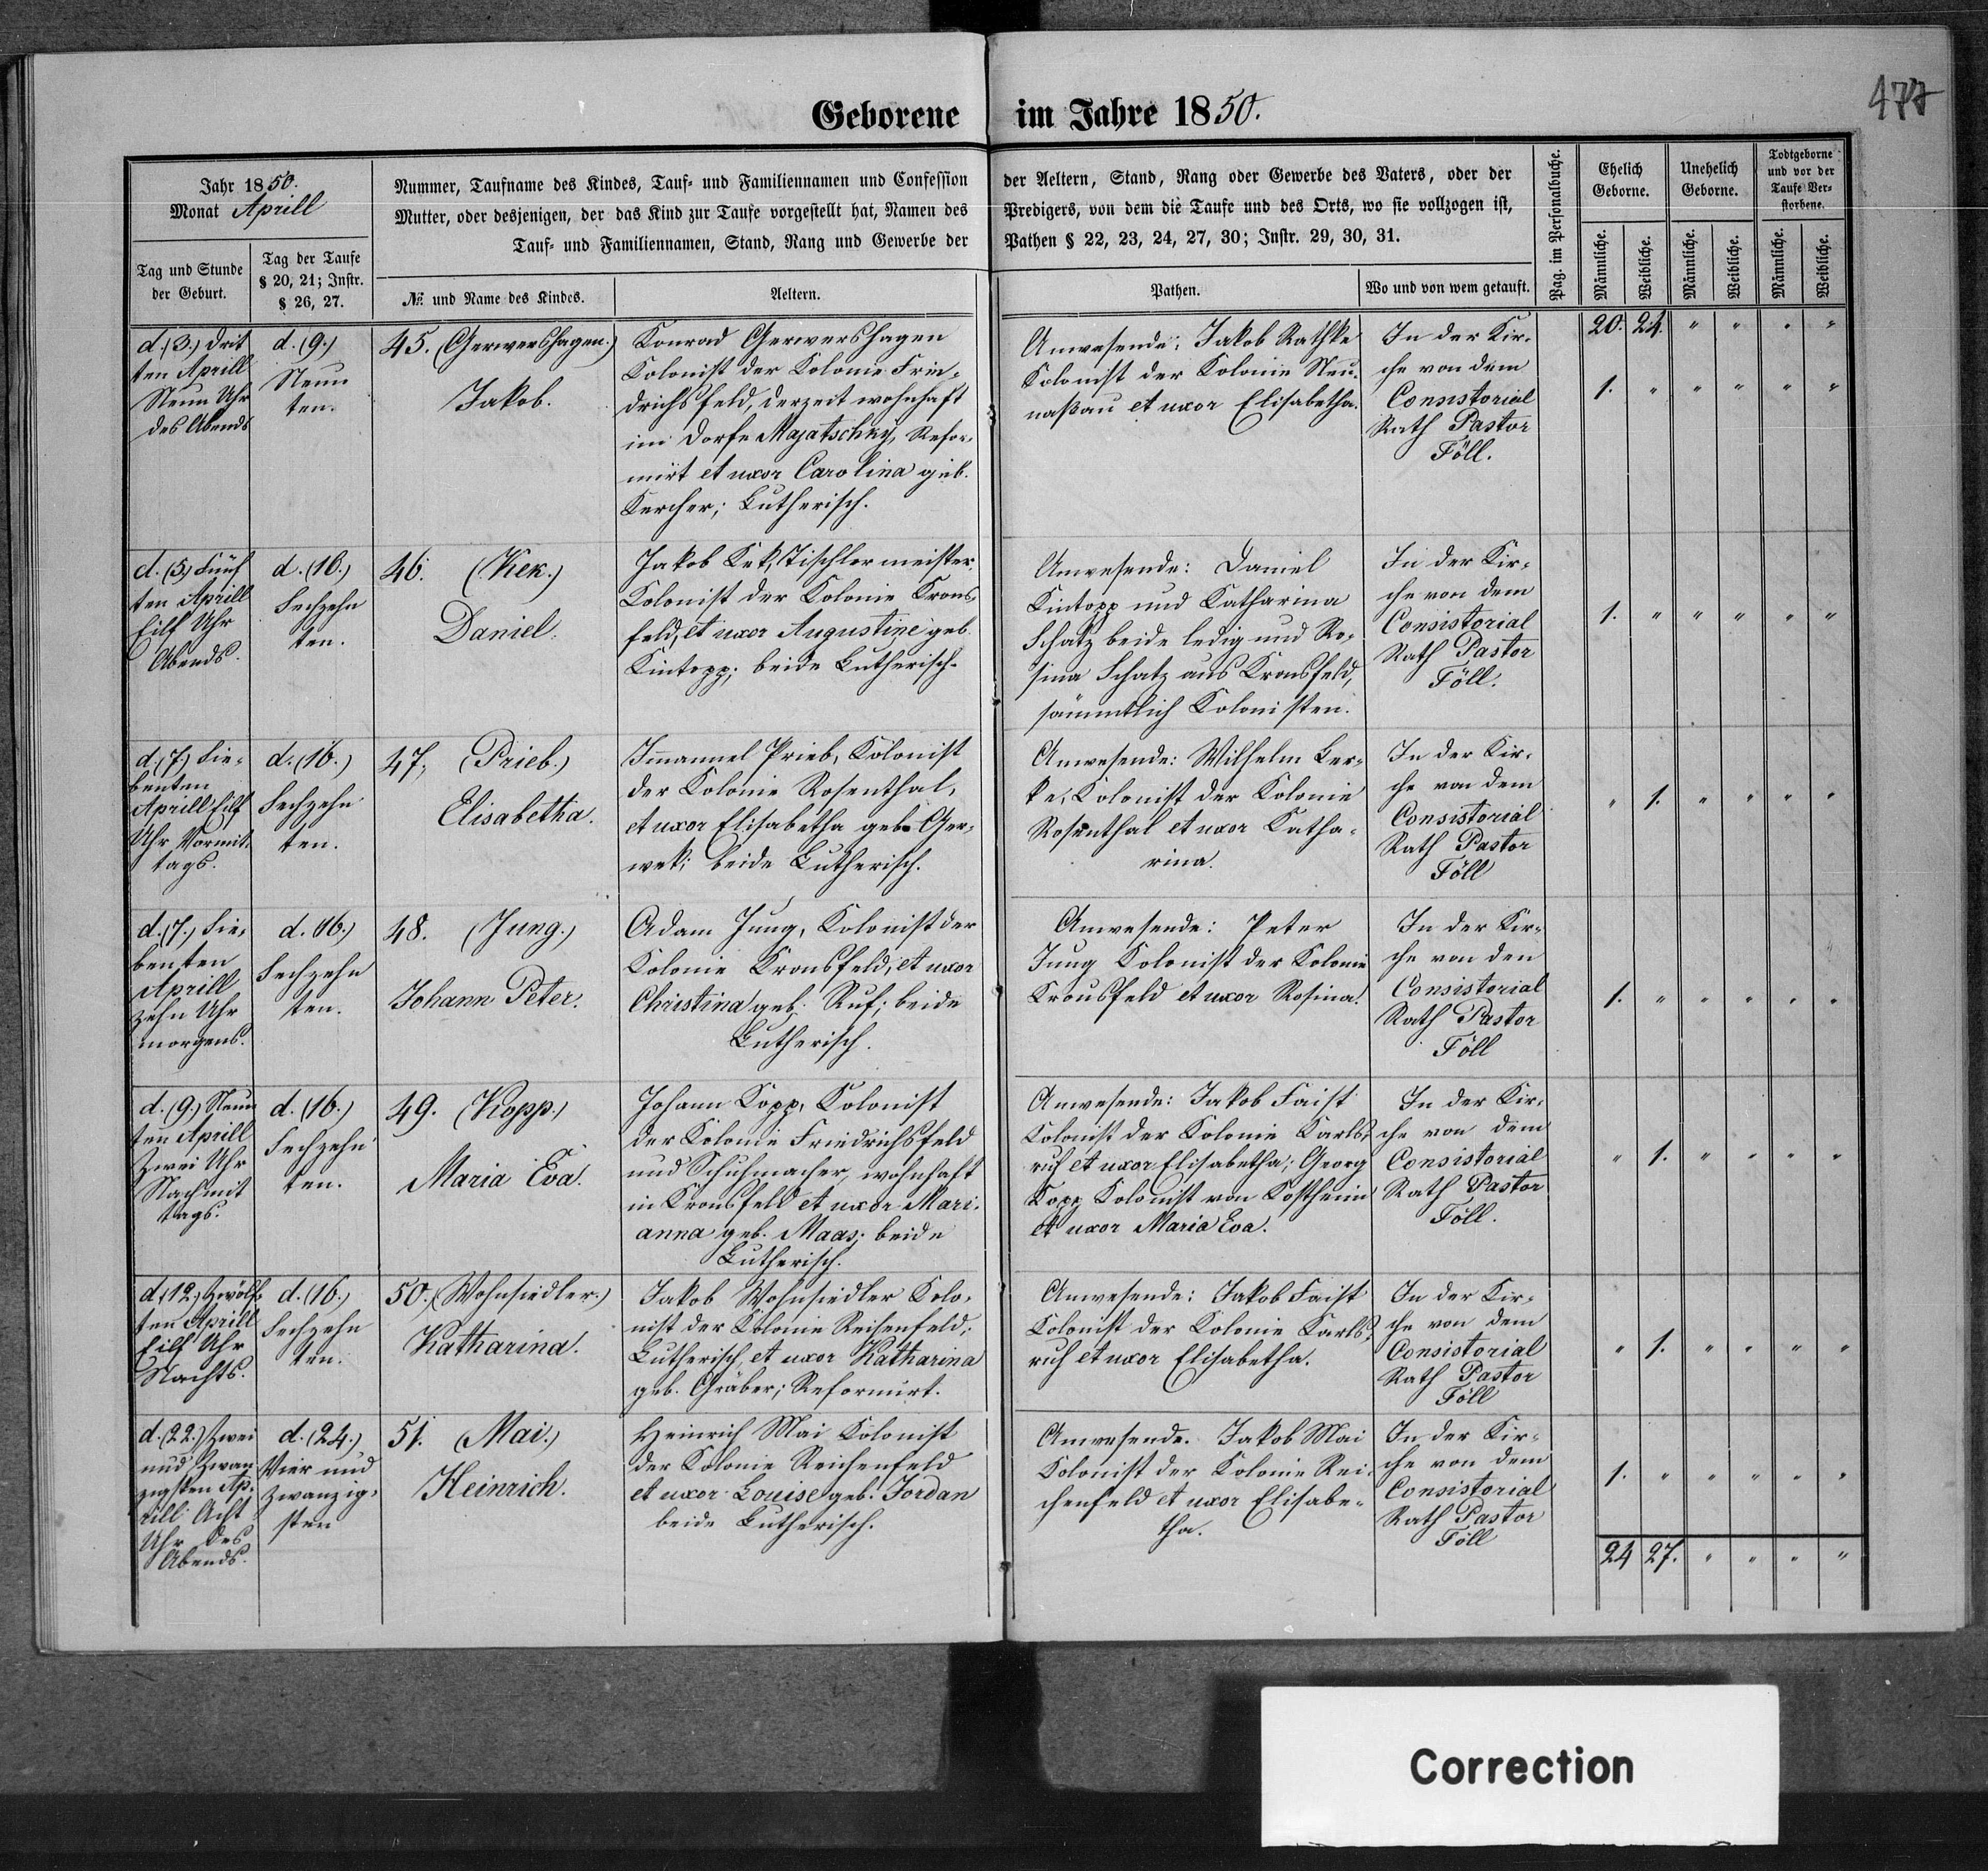 477
Geborene im Jahre 1850.
Jahr 1850.
Monat Aprill
Nummer, Taufname des Kindes, Tauf- und Familiennamen und Confession
Mutter, oder desjenigen, der das Kind zur Taufe vorgestellt hat, Namen des
Tauf- und Familiennamen, Stand, Rang und Gewerbe der
der Aeltern, Stand, Rang oder Gewerbe des Vaters, oder der
Predigers, von dem die Taufe und des Orts, wo sie vollzogen ist,
Pathen § 22, 23, 24, 27, 30; Instr. 29, 30, 31.
Tag und Stunde
der Geburt.
Tag der Taufe
§ 20, 21; Instr.
§ 26, 27.
№ und Name des Kindes.
Aeltern.
Pathen.
Wo und von wem getauft.
Pag. im Personalbuche.
Ehelich
Geborne.
Unehelich
Geborne.
Todtgeborne
und vor der
Taufe Ver-
storbene.
Männliche.
Weibliche.
Männliche.
Weibliche.
Männliche.
Weibliche.
d. (3.) Drit
ten Aprill
Neun Uhr
des Abends
d. (9.)
Neun
ten.
45. (Gerwershagen.)
Jakob.
Konrad Gerwershagen
Kolonist der Kolonie Frie-
drichsfeld, derzeit wohnhaft
im Dorfe Majatschky, Refor-
mirt et uxor Carolina geb.
Kercher; Lutherisch.
Anwesende: Jakob Rathke
Kolonist der Kolonie Neu-
naßau et uxor Elisabetha.
In der Kir-
che von dem
Consistorial
Rath Pastor
Föll.
20. 24. " " " "
1. " " " " "
d. (5.) Fünf
ten Aprill
Eilf Uhr
Abends.
d. (16.)
Sechzehn
ten.
46. (Kek.)
Daniel.
Jakob Kek, Tischlermeister,
Kolonist der Kolonie Krons-
feld, et uxor Augustine geb.
Kintopp; beide Lutherisch.
Anwesende: Daniel
Kintopp und Katharina
Schatz beide ledig und Ro-
sina Schatz aus Kronsfeld,
sämmtlich Kolonisten.
In der Kir-
che von dem
Consistorial
Rath Pastor
Föll.
1. " " " " "
d. (7.) Sie-
benten
Aprill Eilf
Uhr Vormit-
tags.
d. (16.)
Sechzehn
ten.
47. (Prieb.)
Elisabetha.
Immanuel Prieb, Kolonist
der Kolonie Rosenthal,
et uxor Elisabetha geb. Ger-
wek; beide Lutherisch.
Anwesende: Wilhelm Ler-
ke, Kolonist der Kolonie
Rosenthal et uxor Katha-
rina.
In der Kir-
che von dem
Consistorial
Rath Pastor
Föll
" 1. " " " "
d. (7.) Sie-
benten
Aprill
zehn Uhr
morgens.
d. (16.)
Sechzehn
ten.
48. (Jung.)
Johann Peter.
Adam Jung, Kolonist der
Kolonie Kronsfeld, et uxor
Christina geb. Ruf; beide
Lutherisch.
Anwesende: Peter
Jung Kolonist der Kolonie
Kronsfeld et uxor Rosina.
In der Kir-
che von den
Consistorial
Rath Pastor
Föll
1. " " " " "
d. (9.) Neun
ten Aprill
Zwei Uhr
Nachmit
tags.
d. (16.)
Sechzehn
ten.
49. (Kopp.)
Maria Eva.
Johann Kopp, Kolonist
der Kolonie Friedrichsfeld
und Schuhmacher, wohnhaft
in Kronsfeld et uxor Mari-
anna geb. Maas; beide
Lutherisch.
Anwesende: Jakob Faist
Kolonist der Kolonie Karls-
ruh et uxor Elisabetha; Georg
Kopp Kolonist von Kostheim
et uxor Maria Eva.
In der Kir-
che von dem
Consistorial
Rath Pastor
Föll.
" 1. " " " "
d. (12.) Zwölf-
ten Aprill
Eilf Uhr
Nachts.
d. (16.)
Sechzehn
ten.
50. (Wohnsiedler.)
Katharina.
Jakob Wohnsiedler Kolo-
nist der Kolonie Reichenfeld;
Lutherisch et uxor Katharina
geb. Gräber; Reformirt.
Anwesende: Jakob Faist
Kolonist der Kolonie Karls-
ruh et uxor Elisabetha.
In der Kir-
che von dem
Consistorial
Rath Pastor
Föll
" 1. " " " "
d. (22.) Zwei
und Zwan
zigsten Ap-
rill Acht
Uhr des
Abends.
d. (24.)
Vier und
Zwanzig-
sten
51. (Mai.)
Heinrich.
Heinrich Mai Kolonist
der Kolonie Reichenfeld
et uxor Louise geb. Jordan
beide Lutherisch.
Anwesende. Jakob Mai
Kolonist der Kolonie Rei-
chenfeld et uxor Elisabe-
tha.
In der Kir-
che von dem
Consistorial
Rath Pastor
Föll
1. " " " " "
24 27. " " " "
Correction